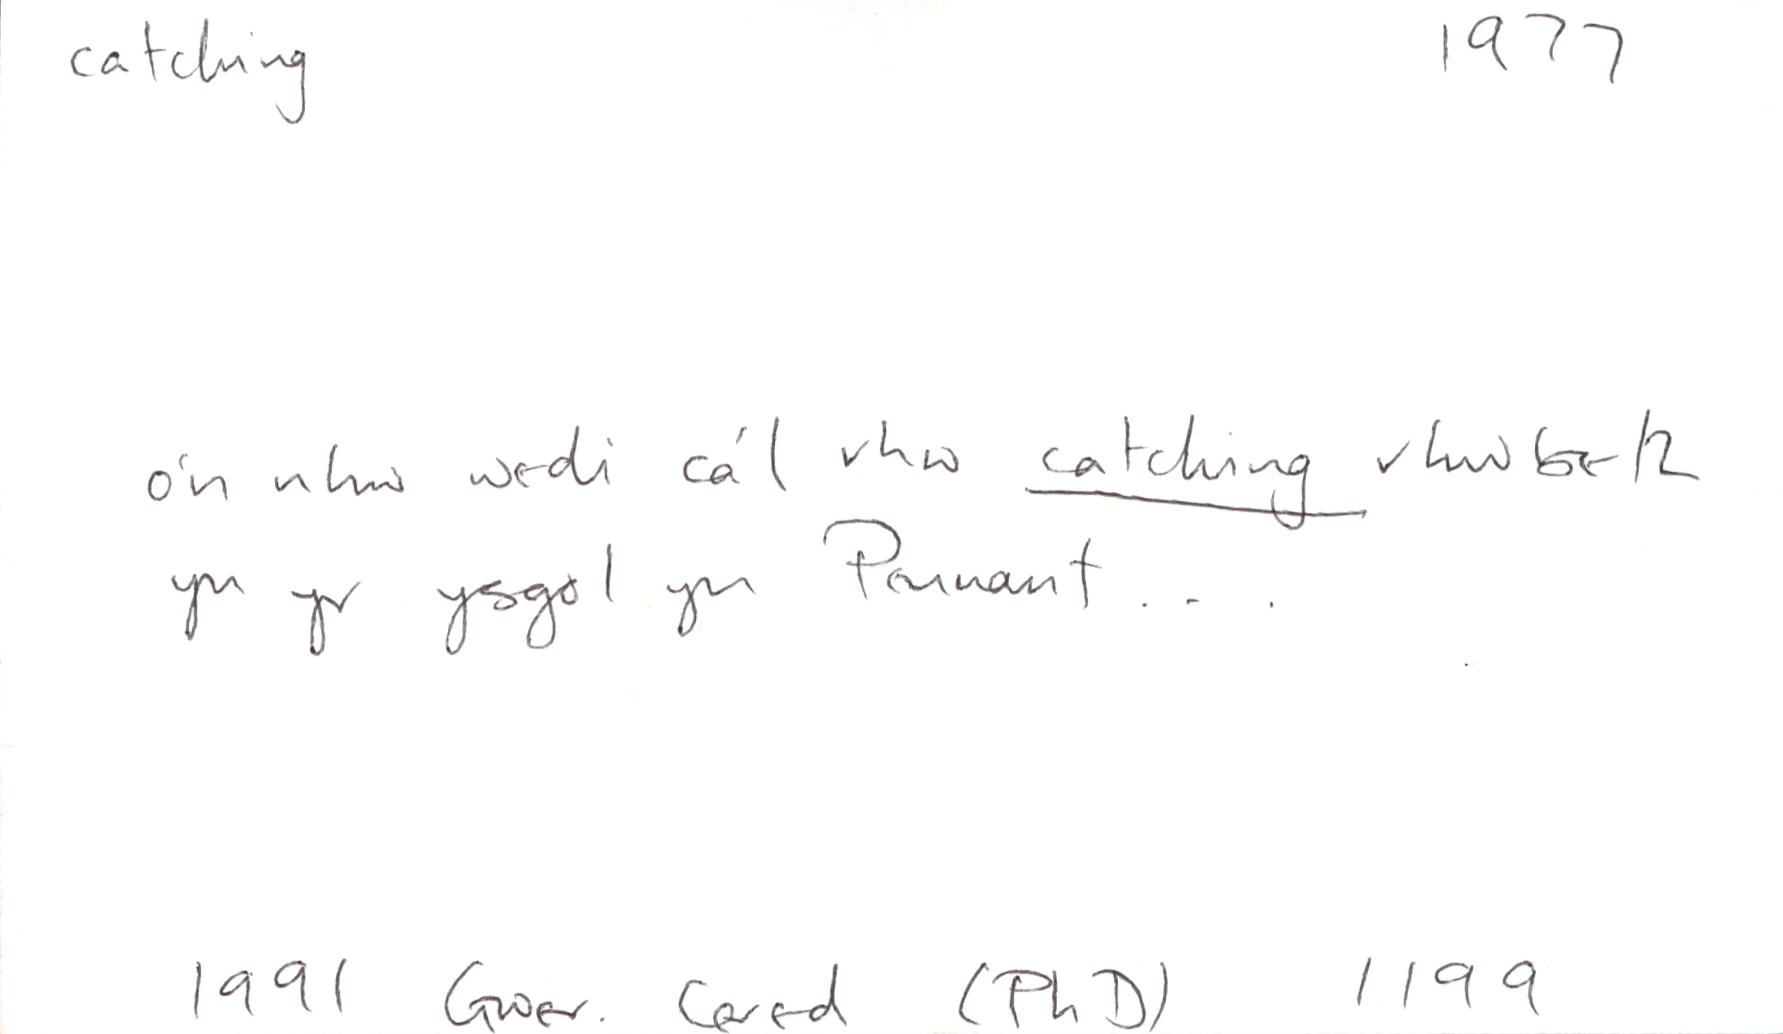 catching 1977
o'n nhw wedi cá'l rhw catching rhwbeth
yn yr ysgol yn Pennant...
1991 Gwer. Cered (PhD) 1199